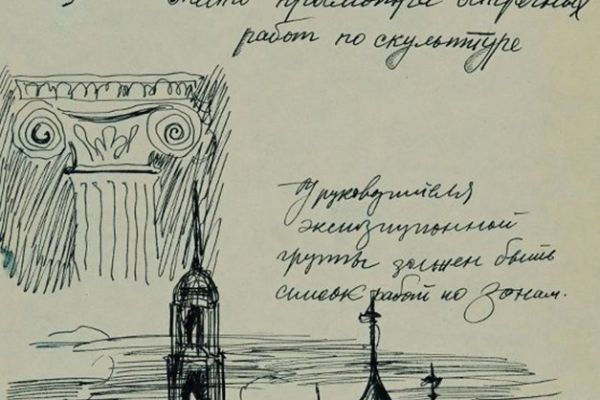 место просмотра
работ по скульптуре
У руководителя
экспозиционной
группы должен быть
список работ по зонам.